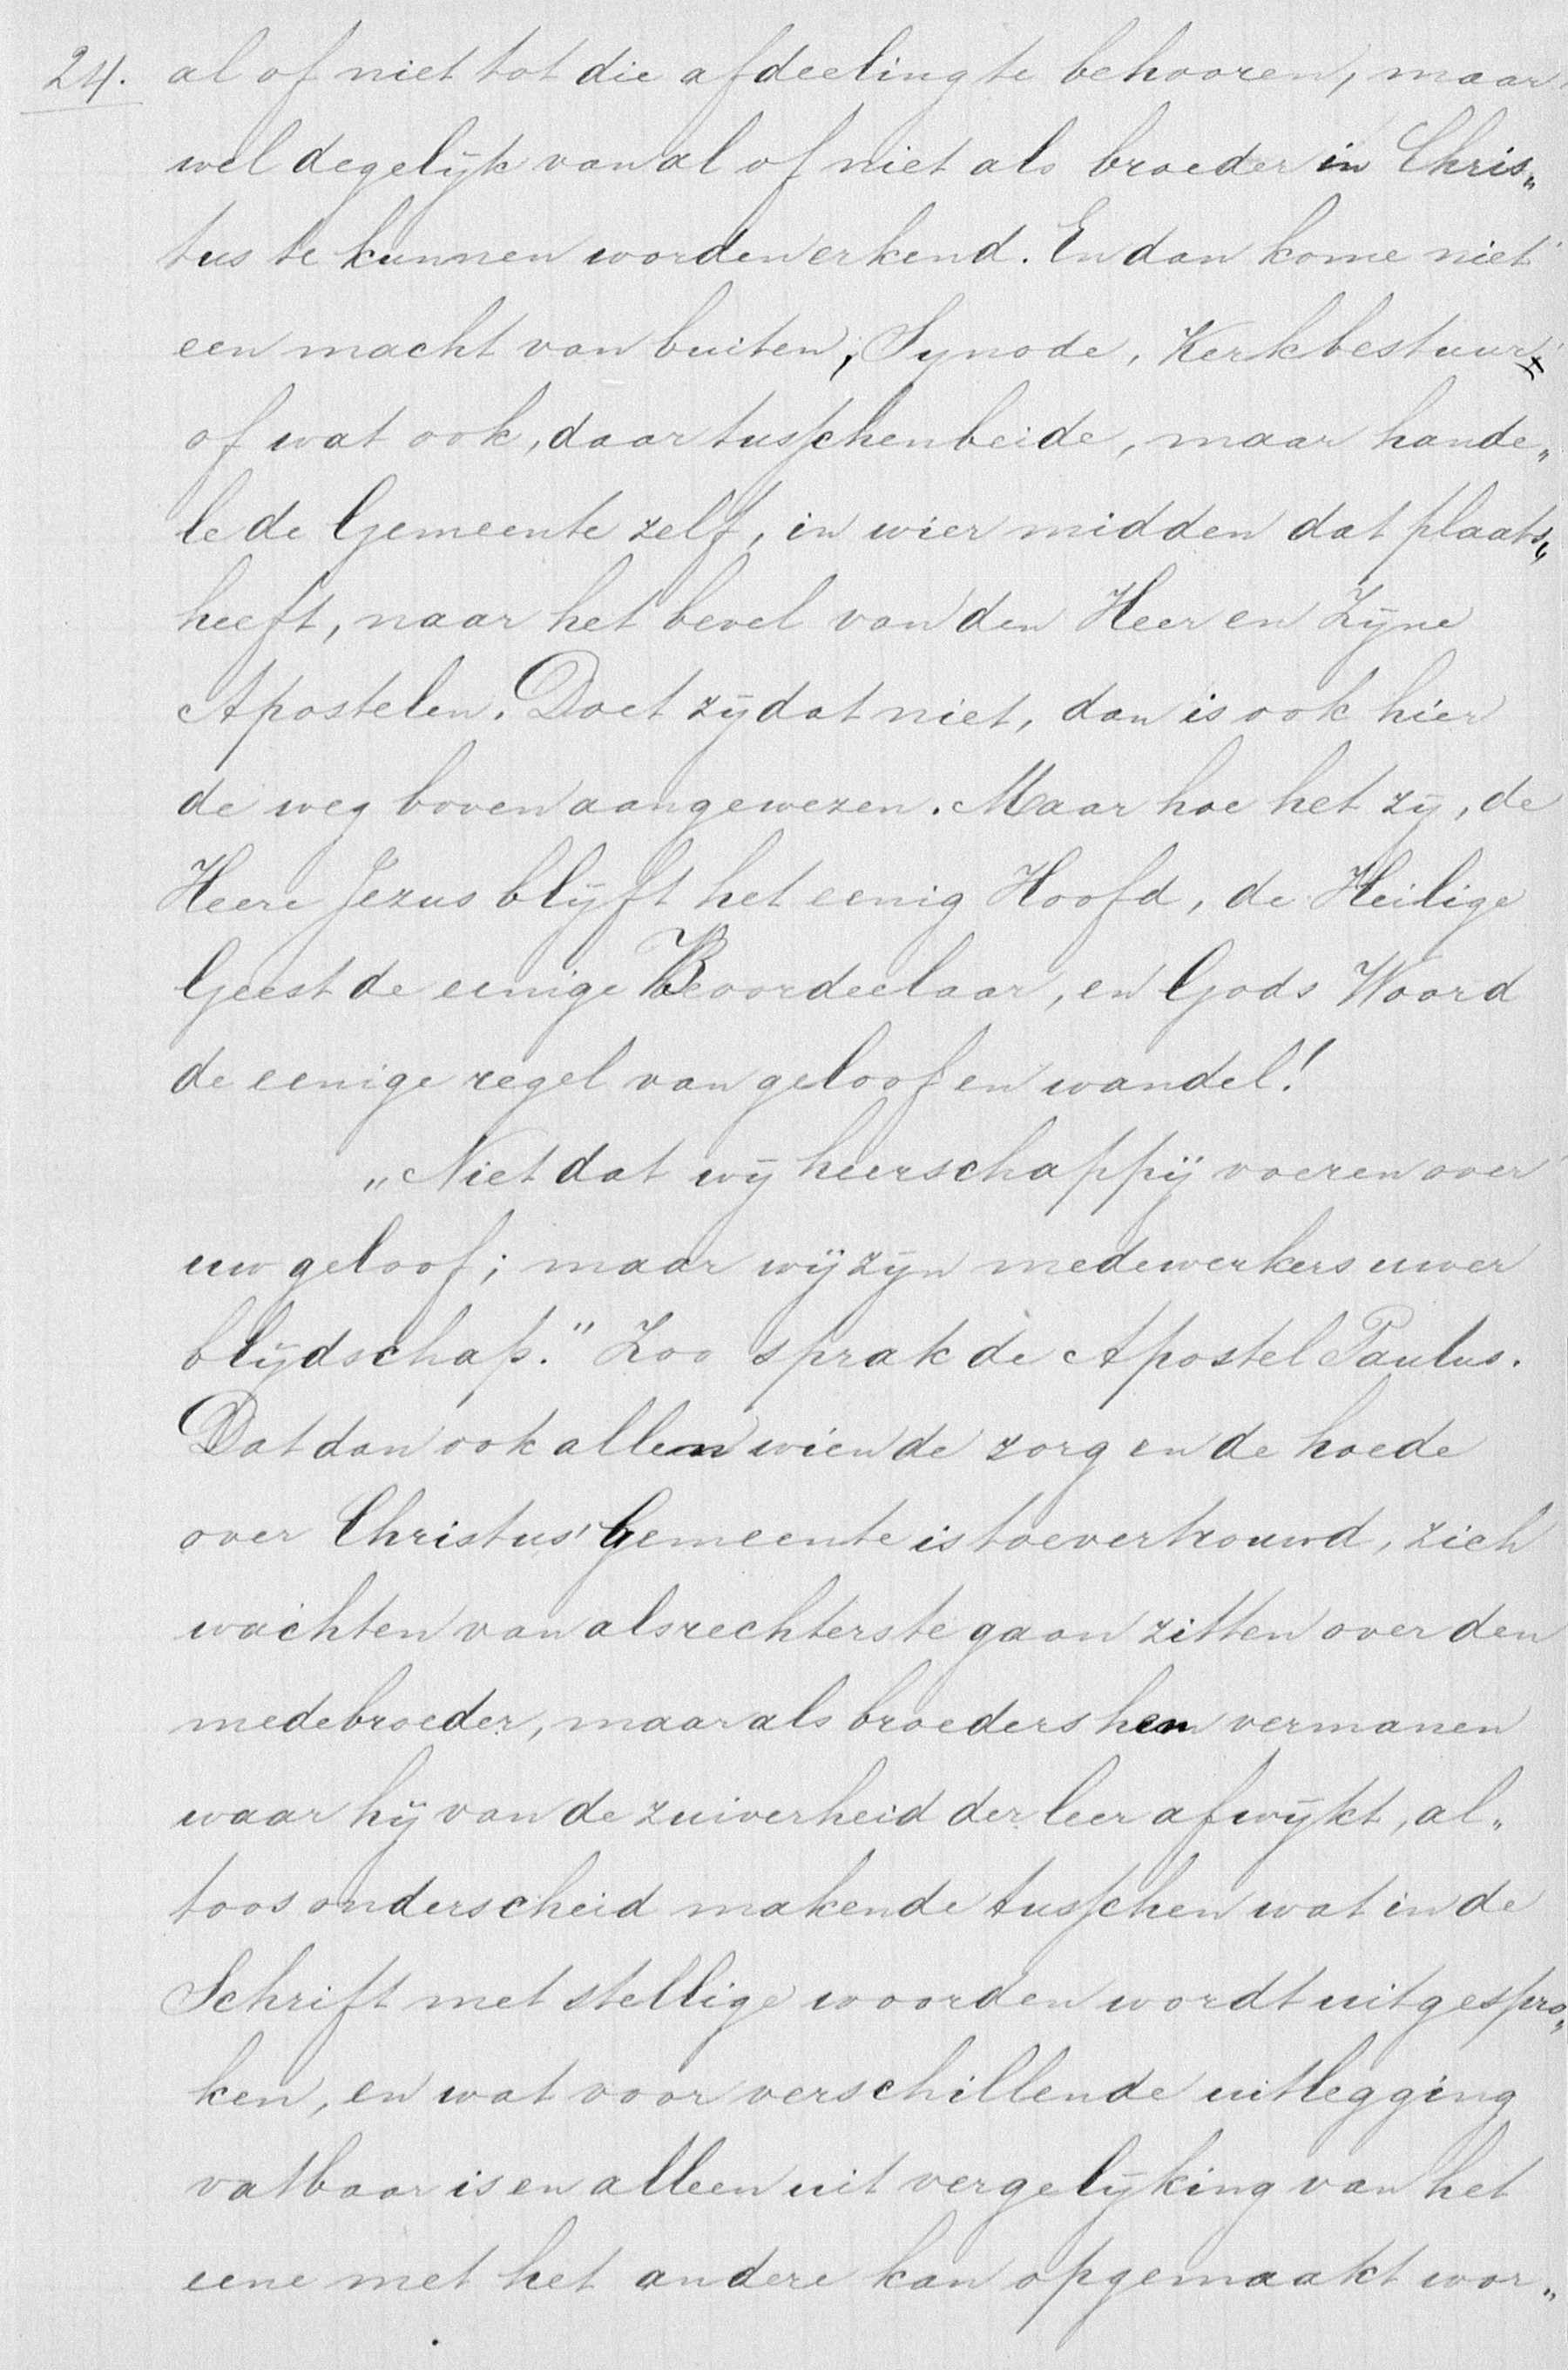 24. al of niet tot die afdeeling te behooren, maar
wel degelijk van al of niet als broeder in Chris„
tus te kunnen worden erkend. En dan kome niet
een macht van buiten, Synode, Kerkbestuur,
of wat ook, daar tusschenbeide, maar hande„
le de Gemeente zelf, in wier midden dat plaats„
heeft, naar het bevel van den Heer en Zijne
Apostelen. Doet zij dat niet, dan is ook hier
de weg boven aangewezen. Maar hoe het zij, de
Heere Jezus blijft het eenig Hoofd, de Heilige
Geest de eenige Beoordeelaar, en Gods Woord
de eenige regel van geloof en wandel!
„Niet dat wij heerschappij voeren over
uw geloof; maar wij zijn medewerkers uwer
blijdschap.” Zoo sprak de Apostel Paulus.
Dat dan ook allen wien de zorg en de hoede
over Christus' Gemeente is toevertrouwd, zich
wachten van als rechters te gaan zitten over den
medebroeder, maar als broeders hem vermanen
waar hij van de zuiverheid der leer afwijkt, al„
toos onderscheid makende tusschen wat in de
Schrift met stellige woorden wordt uitgespro„
ken, en wat voor verschillende uitlegging
vatbaar is en alleen uit vergelijking van het
eene met het andere kan opgemaakt wor„